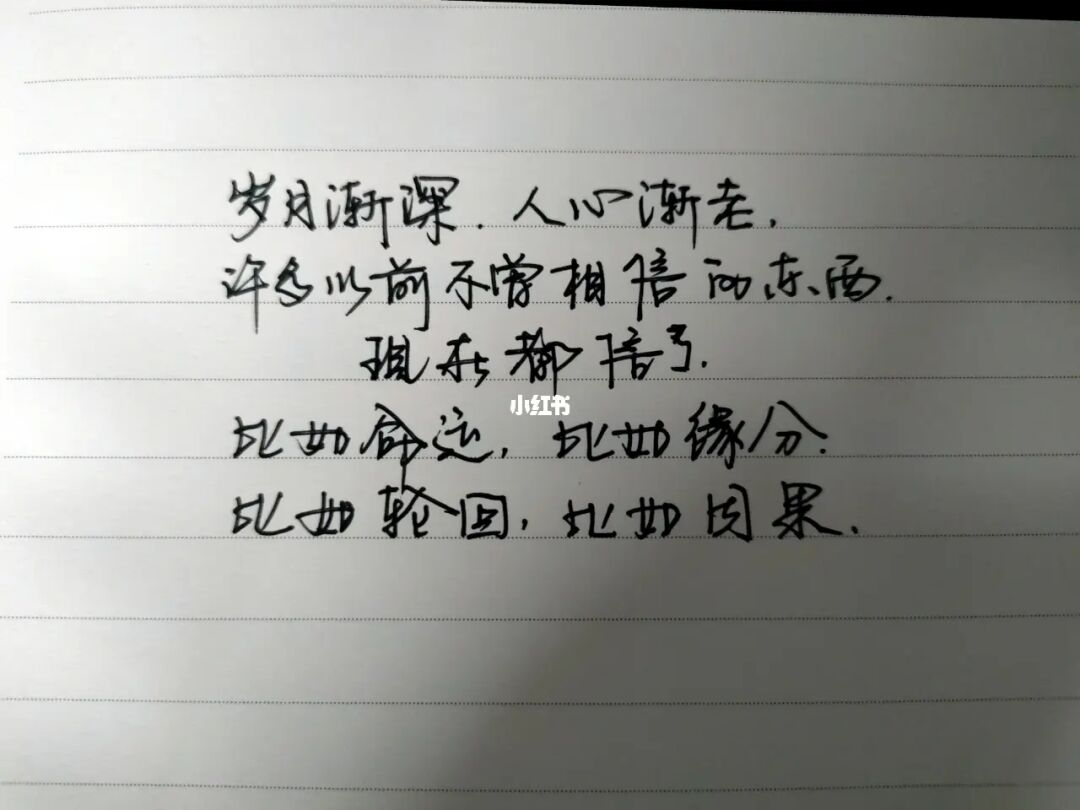 岁月渐深.人心渐老,
许多以前不曾相信的东西.
现在都信了.
小红书
比如命运,比如缘分.
比如轮回,比如因果.